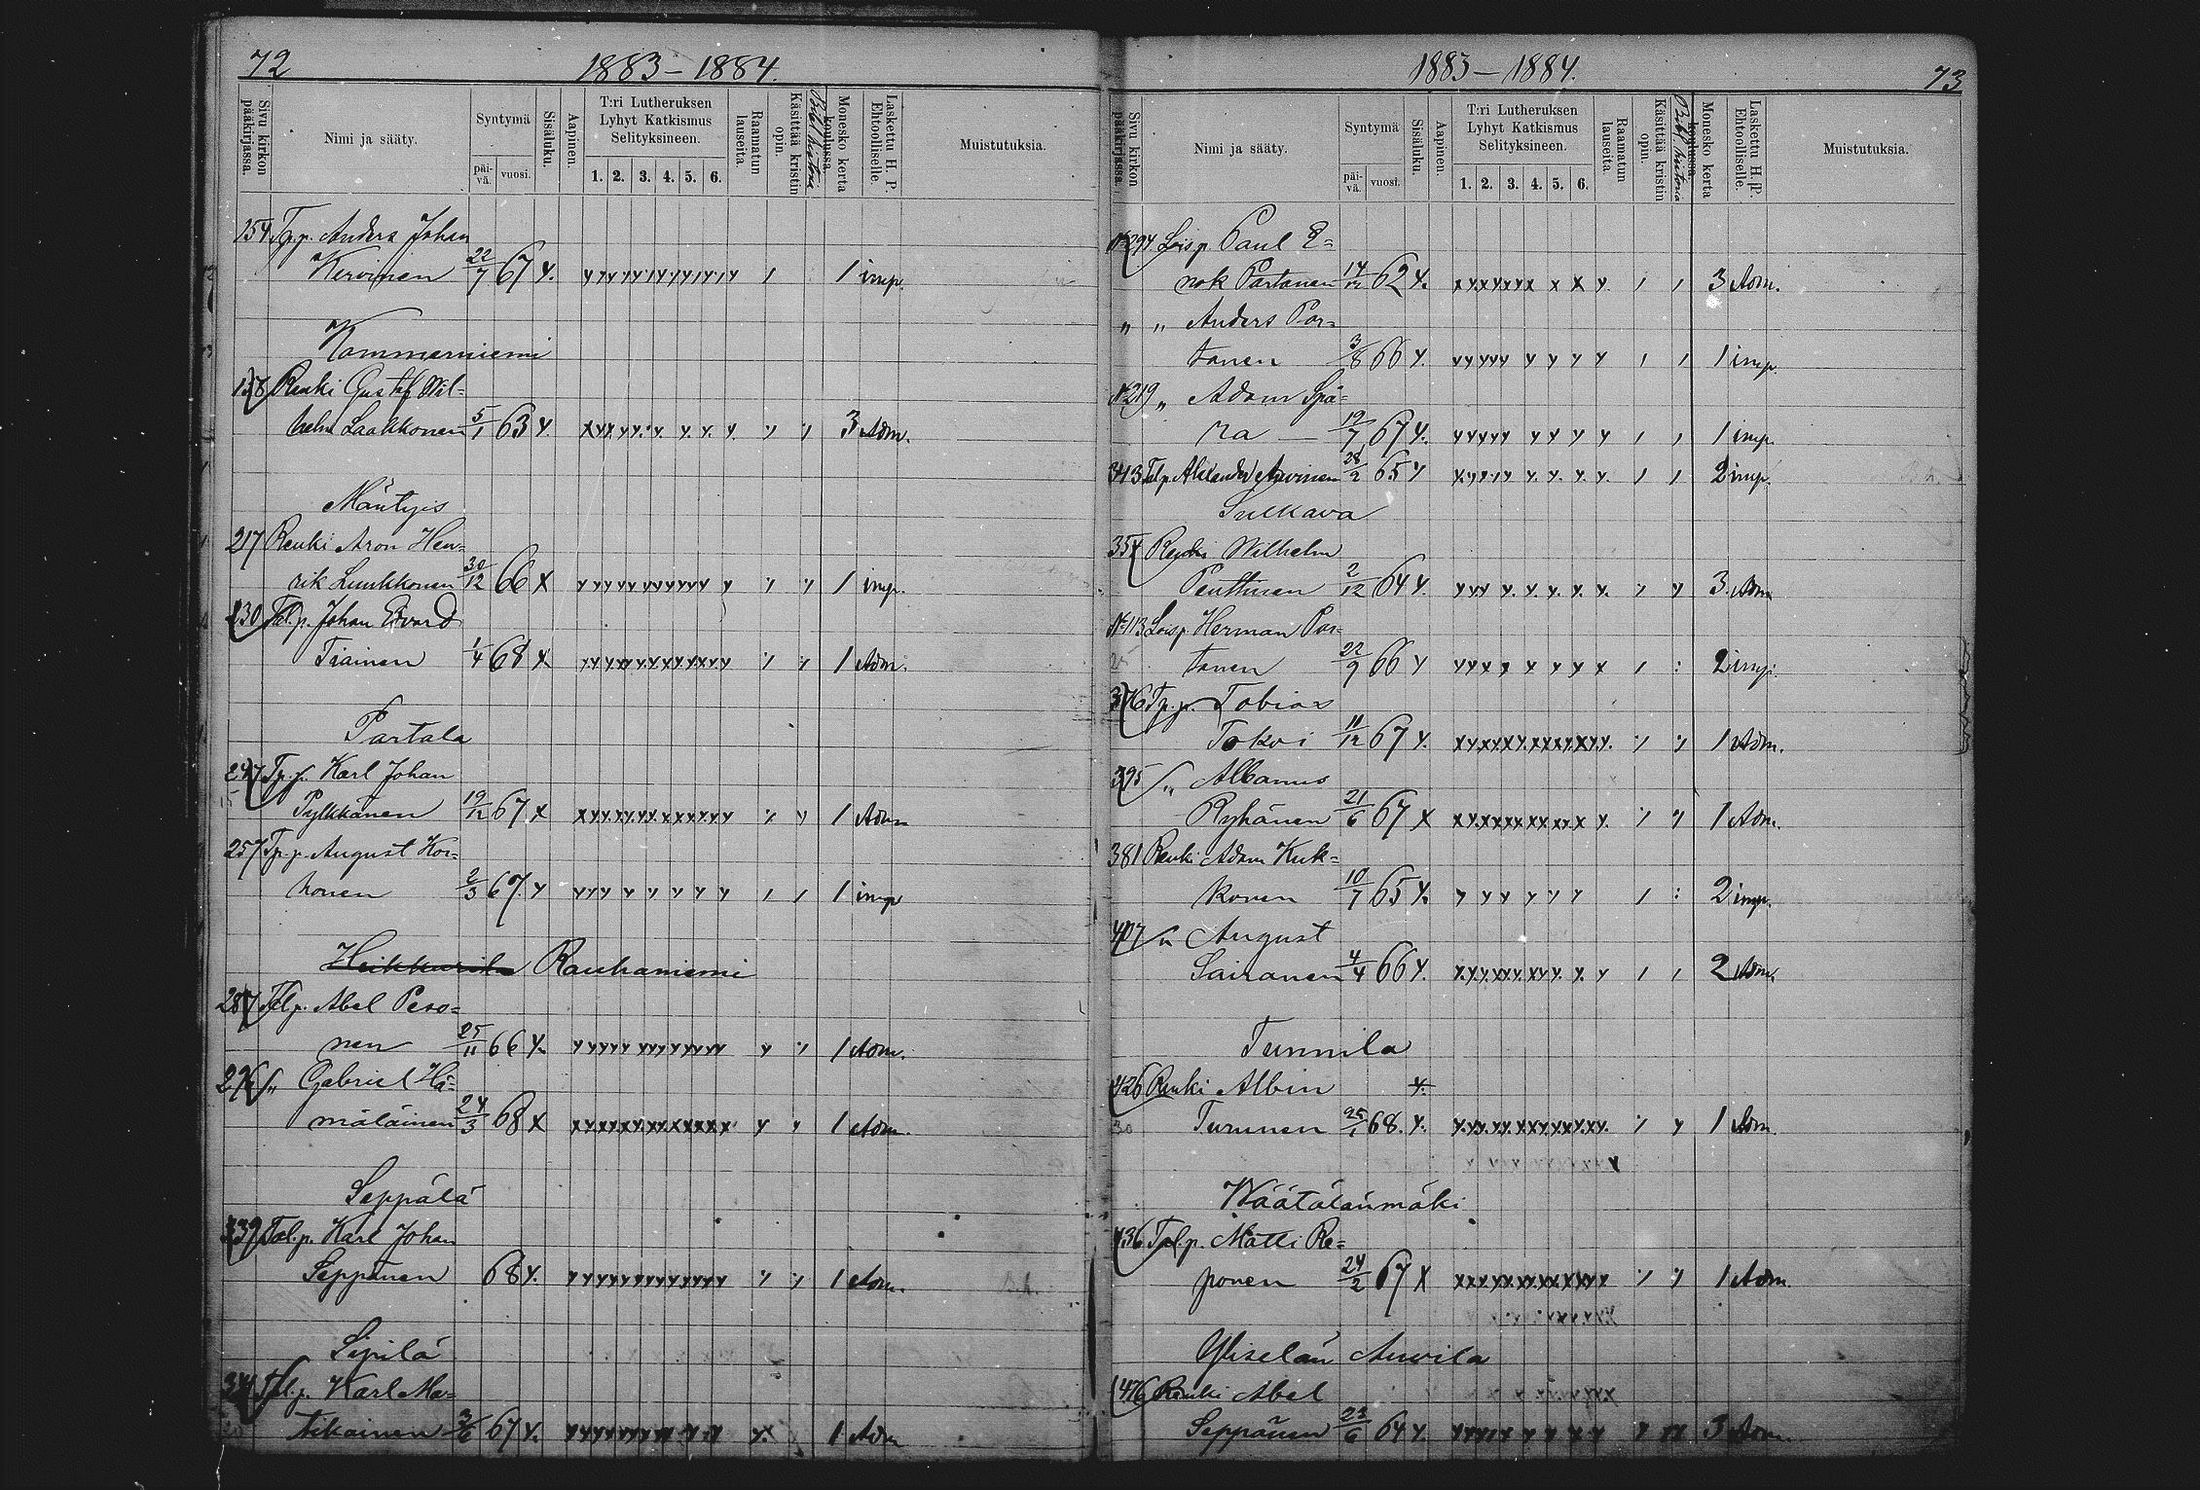 72
1883–1884.
Sivu kirkon pääkirjassa.
Nimi ja sääty.
Syntymä
päivä.
vuosi.
Sisäluku.
Aapinen.
T:ri Lutheruksen
Lyhyt Katkismus
Selityksineen.
1. 2. 3. 4. 5. 6.
Raamatun lauseita.
Käsittää kristin opin.
Monesko kerta koulussa.
Laskettu H. P. Ehtoolliselle.
Muistutuksia.
154 Tp.p. Anders Johan
Kervinen 22/7 67 1 imp.
Kommerniemi
158 Renki Gustaf Wil=
helm Laakkonen 5/1 63 3 Adm.
Mäntyis
217 Renki Aron Hen=
rik Luukkonen 30/12 66 x 1 imp.
230 Tal.p. Johan Edvard
Tiainen 1/4 68 x 1 Adm.
Partala
247 Tp.p. Karl Johan
Pylkkänen 19/12 67 x 1 Adm
257 Tp.p. August Kor=
honen 2/3 67 1 imp
Heikkurila Rauhaniemi
287 Tal.p. Abel Peso=
nen 25/11 66 1 Adm.
296 " Gabriel Hä=
mäläinen 24/3 68 x 1 Adm.
Seppälä
339 Tal.p. Karl Johan
Seppänen 68 1 Adm.
Sipilä
Tal.p. Karl Ma=
tikainen 3/6 67 1 Adm
1883–1884.
73
Sivu kirkon pääkirjassa.
Nimi ja sääty.
Syntymä
päivä.
vuosi.
Sisäluku.
Aapinen.
T:ri Lutheruksen
Lyhyt Katkismus
Selityksineen.
1. 2. 3. 4. 5. 6.
Raamatun lauseita.
Käsittää kristin opin.
Monesko kerta koulussa.
Laskettu H. P. Ehtoolliselle.
Muistutuksia.
294 Loisp. Paul E=
nok Partanen 14/12 62 3 Adm.
" " Anders Par=
tanen 3/8 66 1 imp.
219 " Adam Spä=
ra — 19/7 67 1 imp.
343 Tal.p. Alexander Auvinen 28/2 65 2 imp.
Sulkava
354 Renki Wilhelm
Penttinen 2/12 64 3 Adm
113 Loisp. Herman Par=
tanen 22/9 66 2 imp.
376 Tp.p. Tobias
Tokoi 11/12 67 1 Adm.
395 " Albanus
Ryhänen 21/6 67 x 1 Adm.
381 Renki Adam Kuk=
konen 10/7 65 2 imp.
407 " August
Sairanen 4/4 66 2 Adm.
Tunnila
426 Renki Albin
Turunen 25/1 68. 1 Adm.
Wäätälänmäki
436 Tal.p. Matti Re=
ponen 24/2 67 x 1 Adm.
Yliselän Auvila
476 Renki Abel
Seppänen 23/6 64 3 Adm.